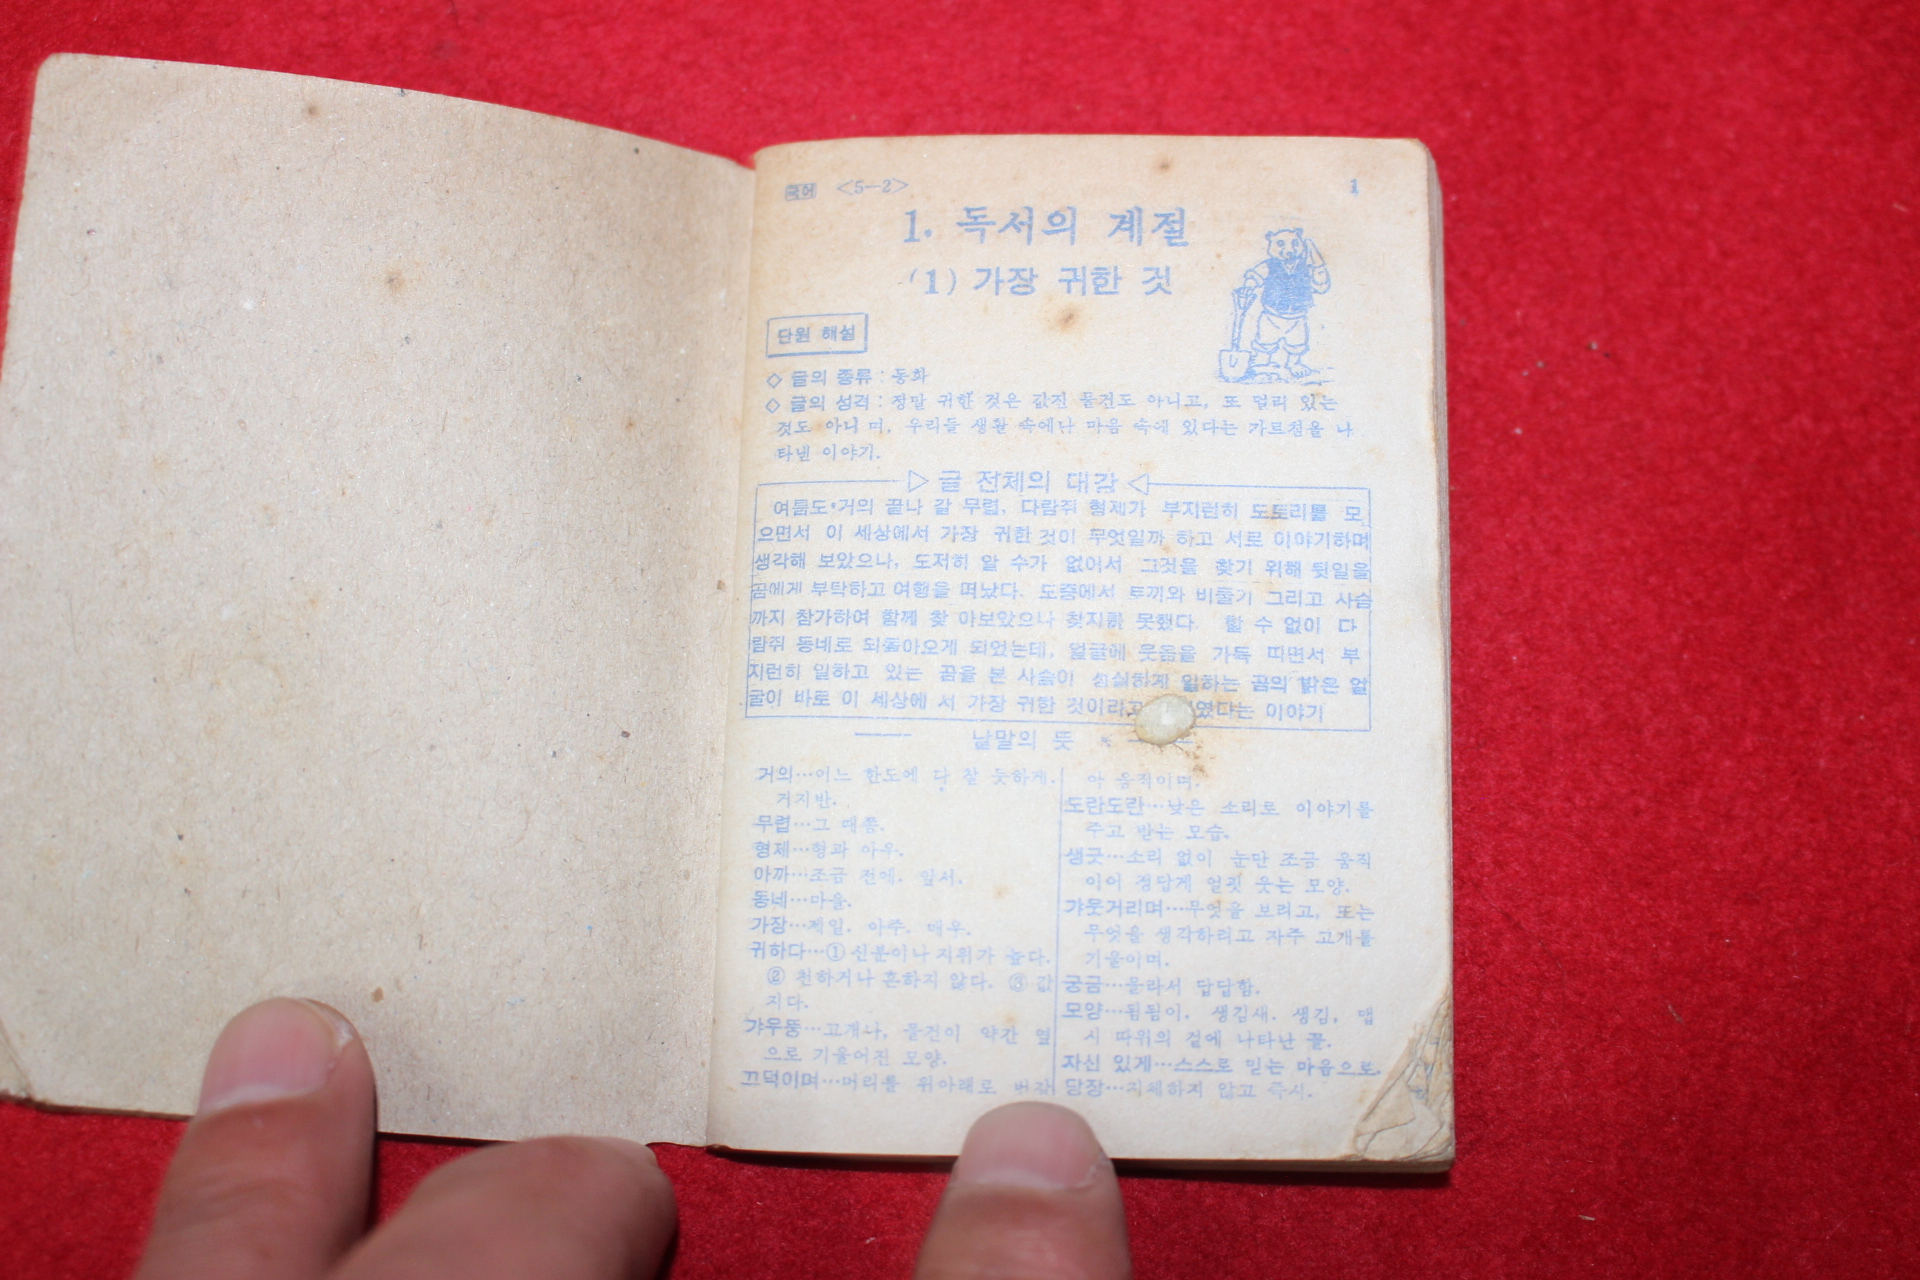 국어 <5-2> 1
1. 독서의 계절
(1) 가장 귀한 것
단원 해설
◇ 글의 종류 : 동화
◇ 글의 성격 : 정말 귀한 것은 값진 물건도 아니고, 또 멀리 있는
것도 아니 며, 우리들 생활 속에나 마음 속에 있다는 가르침을 나
타낸 이야기.
▷ 글 전체의 대강 ◁
여름도 거의 끝나 갈 무렵, 다람쥐 형제가 부지런히 도토리를 모
으면서 이 세상에서 가장 귀한 것이 무엇일까 하고 서로 이야기하며
생각해 보았으나, 도저히 알 수가 없어서 그것을 찾기 위해 뒷일을
곰에게 부탁하고 여행을 떠났다. 도중에서 토끼와 비둘기 그리고 사슴
까지 참가하여 함께 찾 아보았으나 찾지를 못했다. 할 수 없이 다
람쥐 동네로 되돌아오게 되었는데, 얼굴에 웃음을 가득 띠면서 부
지런히 일하고 있는 곰을 본 사슴이 성실하게 일하는 곰의 밝은 얼
굴이 바로 이 세상에 서 가장 귀한 것이라고 였다는 이야기
낱말의 뜻
거의…어느 한도에 다 찰 듯하게.
거지반.
무렵…그 때쯤.
형제…형과 아우.
아까…조금 전에. 앞서.
동네…마을.
가장…제일. 아주. 매우.
귀하다…① 신분이나 지위가 높다.
② 천하거나 흔하지 않다. ③ 값
지다.
갸우뚱…고개나, 물건이 약간 옆
으로 기울어진 모양.
끄덕이며…머리를 위아래로 번갈
아 움직이며.
도란도란…낮은 소리로 이야기를
주고 받는 모습.
생긋…소리 없이 눈만 조금 움직
이어 정답게 얼핏 웃는 모양.
갸웃거리며…무엇을 보려고, 또는
무엇을 생각하려고 자주 고개를
기울이며.
궁금…몰라서 답답함.
모양…됨됨이. 생김새. 생김, 맵
시 따위의 겉에 나타난 꼴.
자신 있게…스스로 믿는 마음으로.
당장…지체하지 않고 즉시.